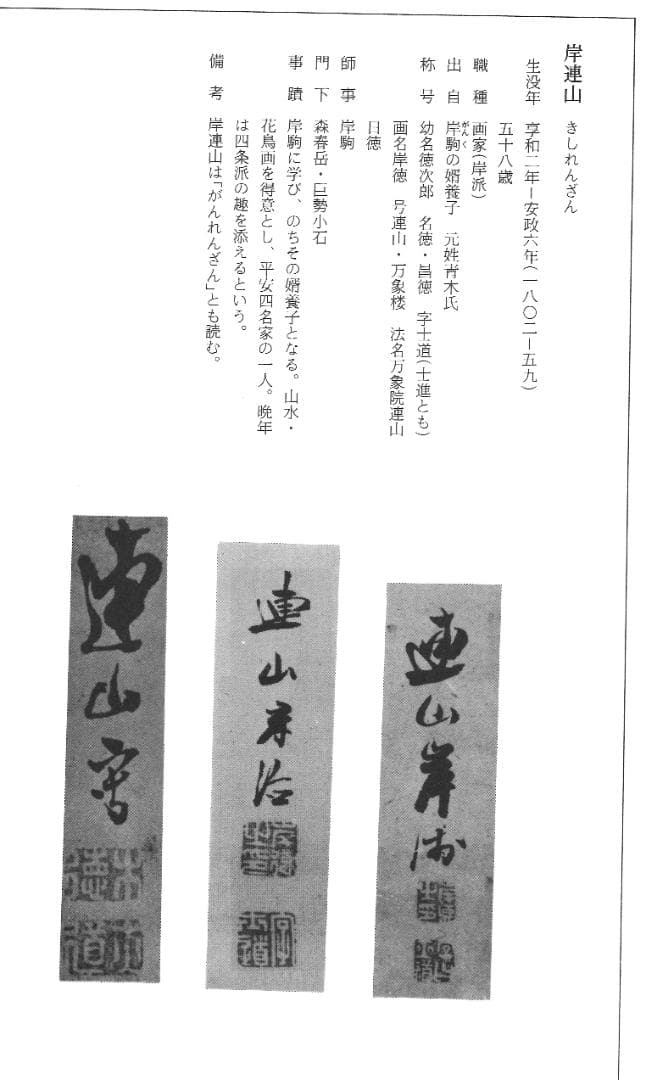 岸連山 きしれんざん
生没年 享和二年ー安政六年(一八〇二ー五九)
五十八歳
職種 画家(岸派)
出自 岸駒の婿養子 元姓青木氏
がんく
称号 幼名徳次郎 名徳・昌徳 字士道(士進とも)
画名岸徳 号連山・万象楼 法名万象院連山
日徳
師事 岸駒
門下 森春岳・巨勢小石
事蹟 岸駒に学び、のちその婿養子となる。山水・
花鳥画を得意とし、平安四名家の一人。晩年
は四条派の趣を添えるという。
備考 岸連山は「がんれんざん」とも読む。
連山岸徳
連山岸徳
字士道
連山写